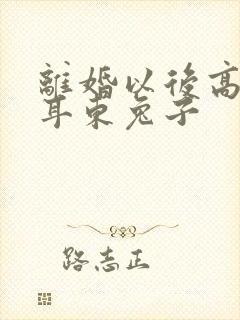 離婚以後高
耳東兔子
路志正